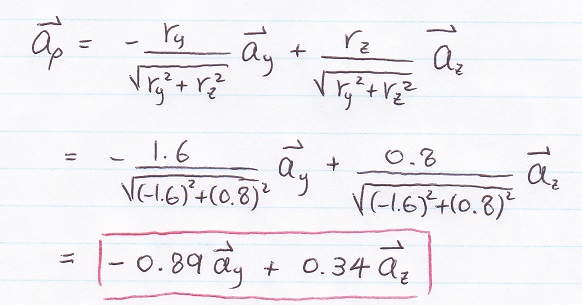 a⃗ρ = - ry/√(ry² + rz²) a⃗y + rz/√(ry² + rz²) a⃗z
= - 1.6/√((-1.6)² + (0.8)²) a⃗y + 0.8/√((-1.6)² + (0.8)²) a⃗z
= - 0.89 a⃗y + 0.34 a⃗z